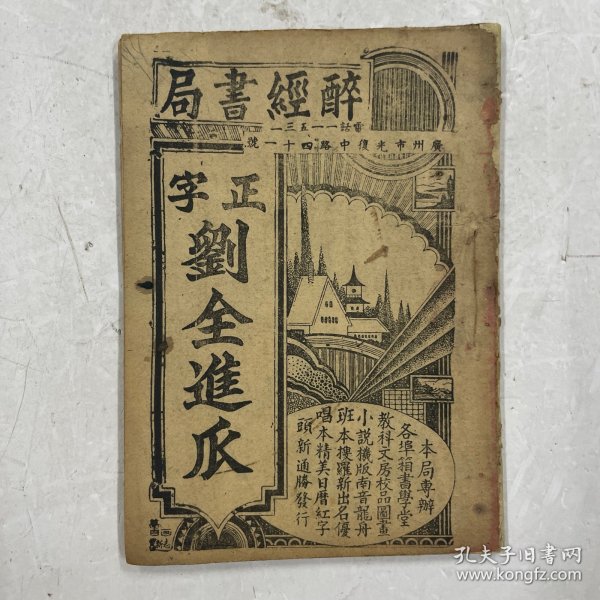 醉經書局
電話一一五三一
廣州市光復中路四十一號
正字
劉全進瓜
本局專辦
各埠箱書學堂
教科文房校品圖畫
小說機版南音龍舟
班本搜羅新出名優
唱本精美日曆紅字
頭新通勝發行
孔夫子旧书网
www.kongfz.com